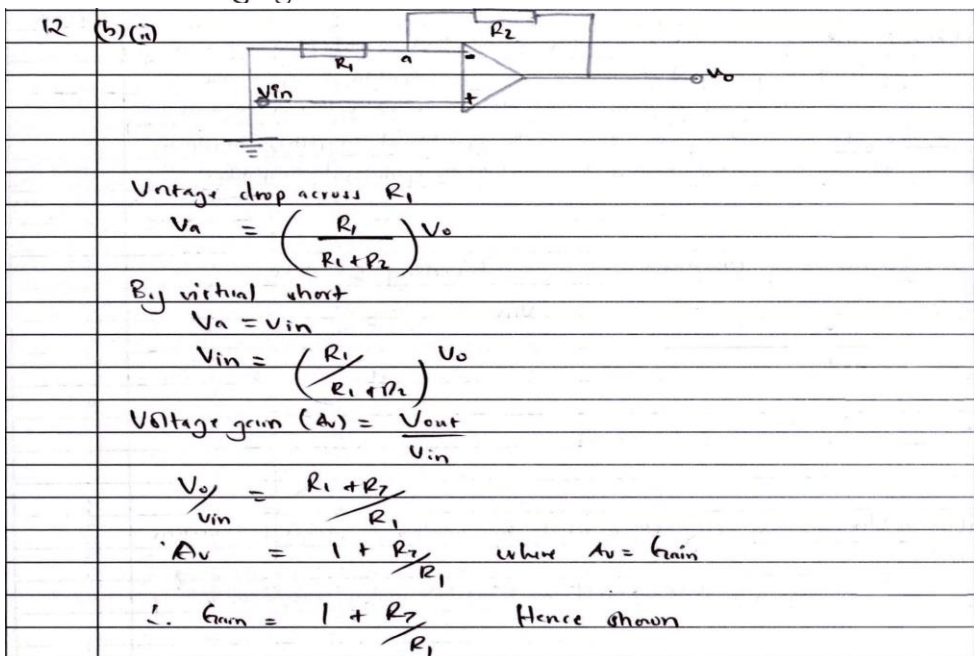 12 (b)(ii)
R2
R1 a -
Vin +
Vo
Voltage drop across R1
Va = (R1 / R1 + R2) Vo
By virtual short
Va = Vin
Vin = (R1 / R1 + R2) Vo
Voltage gain (Av) = Vout / Vin
Vo / Vin = R1 + R2 / R1
Av = 1 + R2 / R1 where Av = Gain
∴ Gain = 1 + R2 / R1 Hence shown